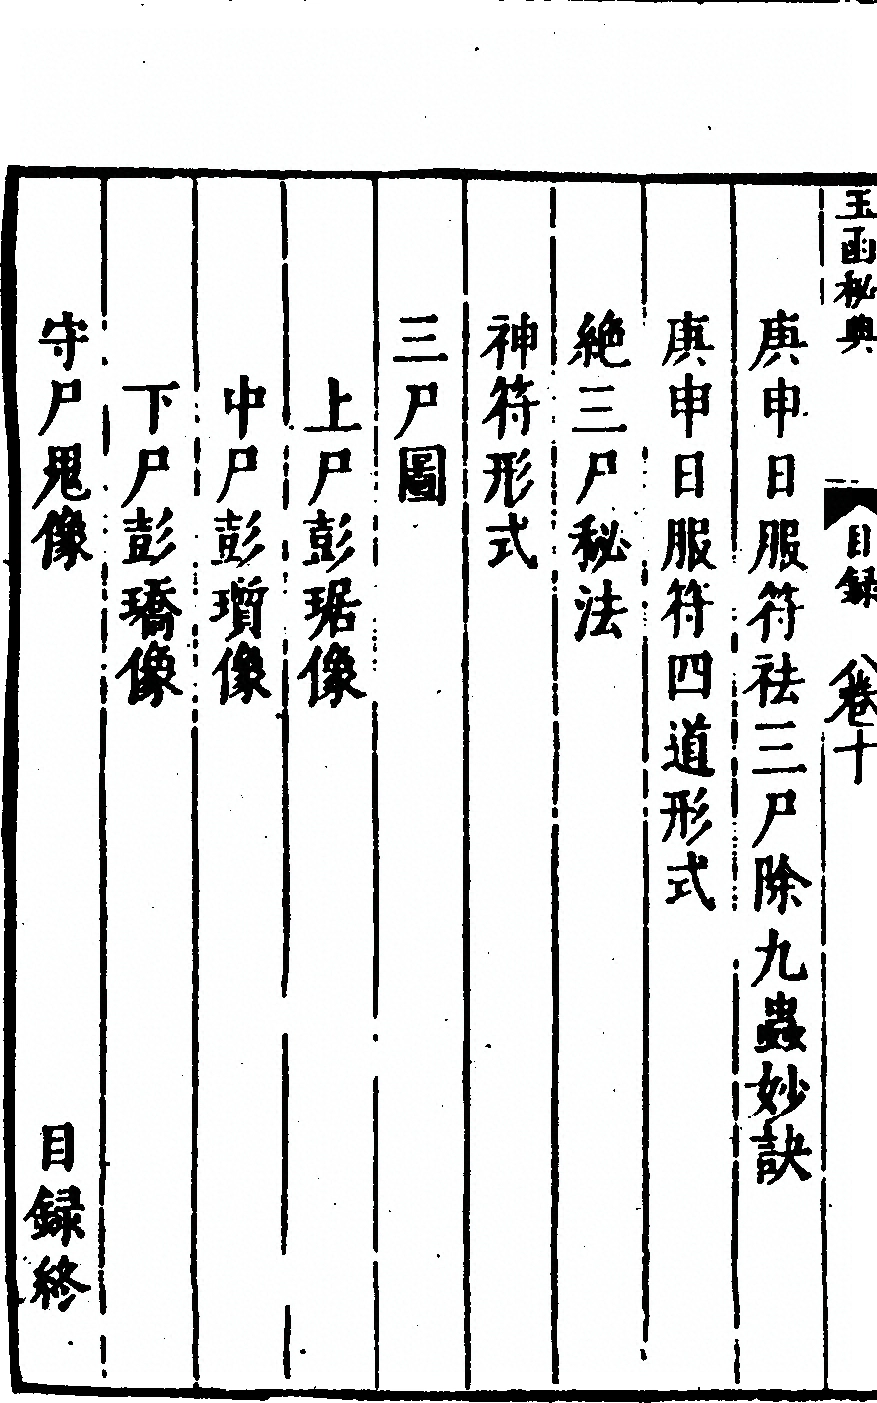 玉函秘典
目録 卷十
庚申日服符祛三尸除九蟲妙訣
庚申日服符四道形式
絶三尸秘法
神符形式
三尸圖
上尸彭琚像
中尸彭瓆像
下尸彭璚像
守尸鬼像
目録終